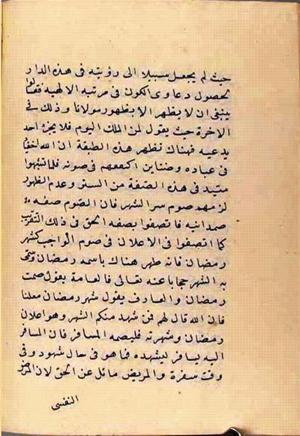 حيث لم يجعل سبيلا الى رؤيته في هذه الدار
لحصول دعاوى الكون في مرتبه الالهية فقالوا
ينبغي ان لا يظهر الا بظهور مولانا وذلك في
الاخرة حيث يقول لمن الملك اليوم فلا يجرى احد
يدعيه فهناك تظهر هذه الطبقة ان الله
في عباده وضناين اكتنفهم في صونه فلما تنبهوا
في هذه الصفة من الستر وعدم الظهور
لزمهم صوم سر الشهر فان الصوم صفه
صمدانيه فاتصفوا بصفه الحق في ذلك التقريب
كما اتصفوا في الاعلان في صوم الواجب كشهر
رمضان فانه ظهر هناك باسمه رمضان وسمى
به الشهر حجابا عنه تعالى فالعامة يقول صمت
رمضان والعارف يقول شهر رمضان معلنا
فان الله قال لهم فمن شهد منكم الشهر وهو اعلان
رمضان وشهرته فليصمه المسافر فان المسافر
اليه يسافر ليشهده فما هو في حال شهود وفي
وقت سفرة والمريض مائل عن الحق لان المرض
النفسى